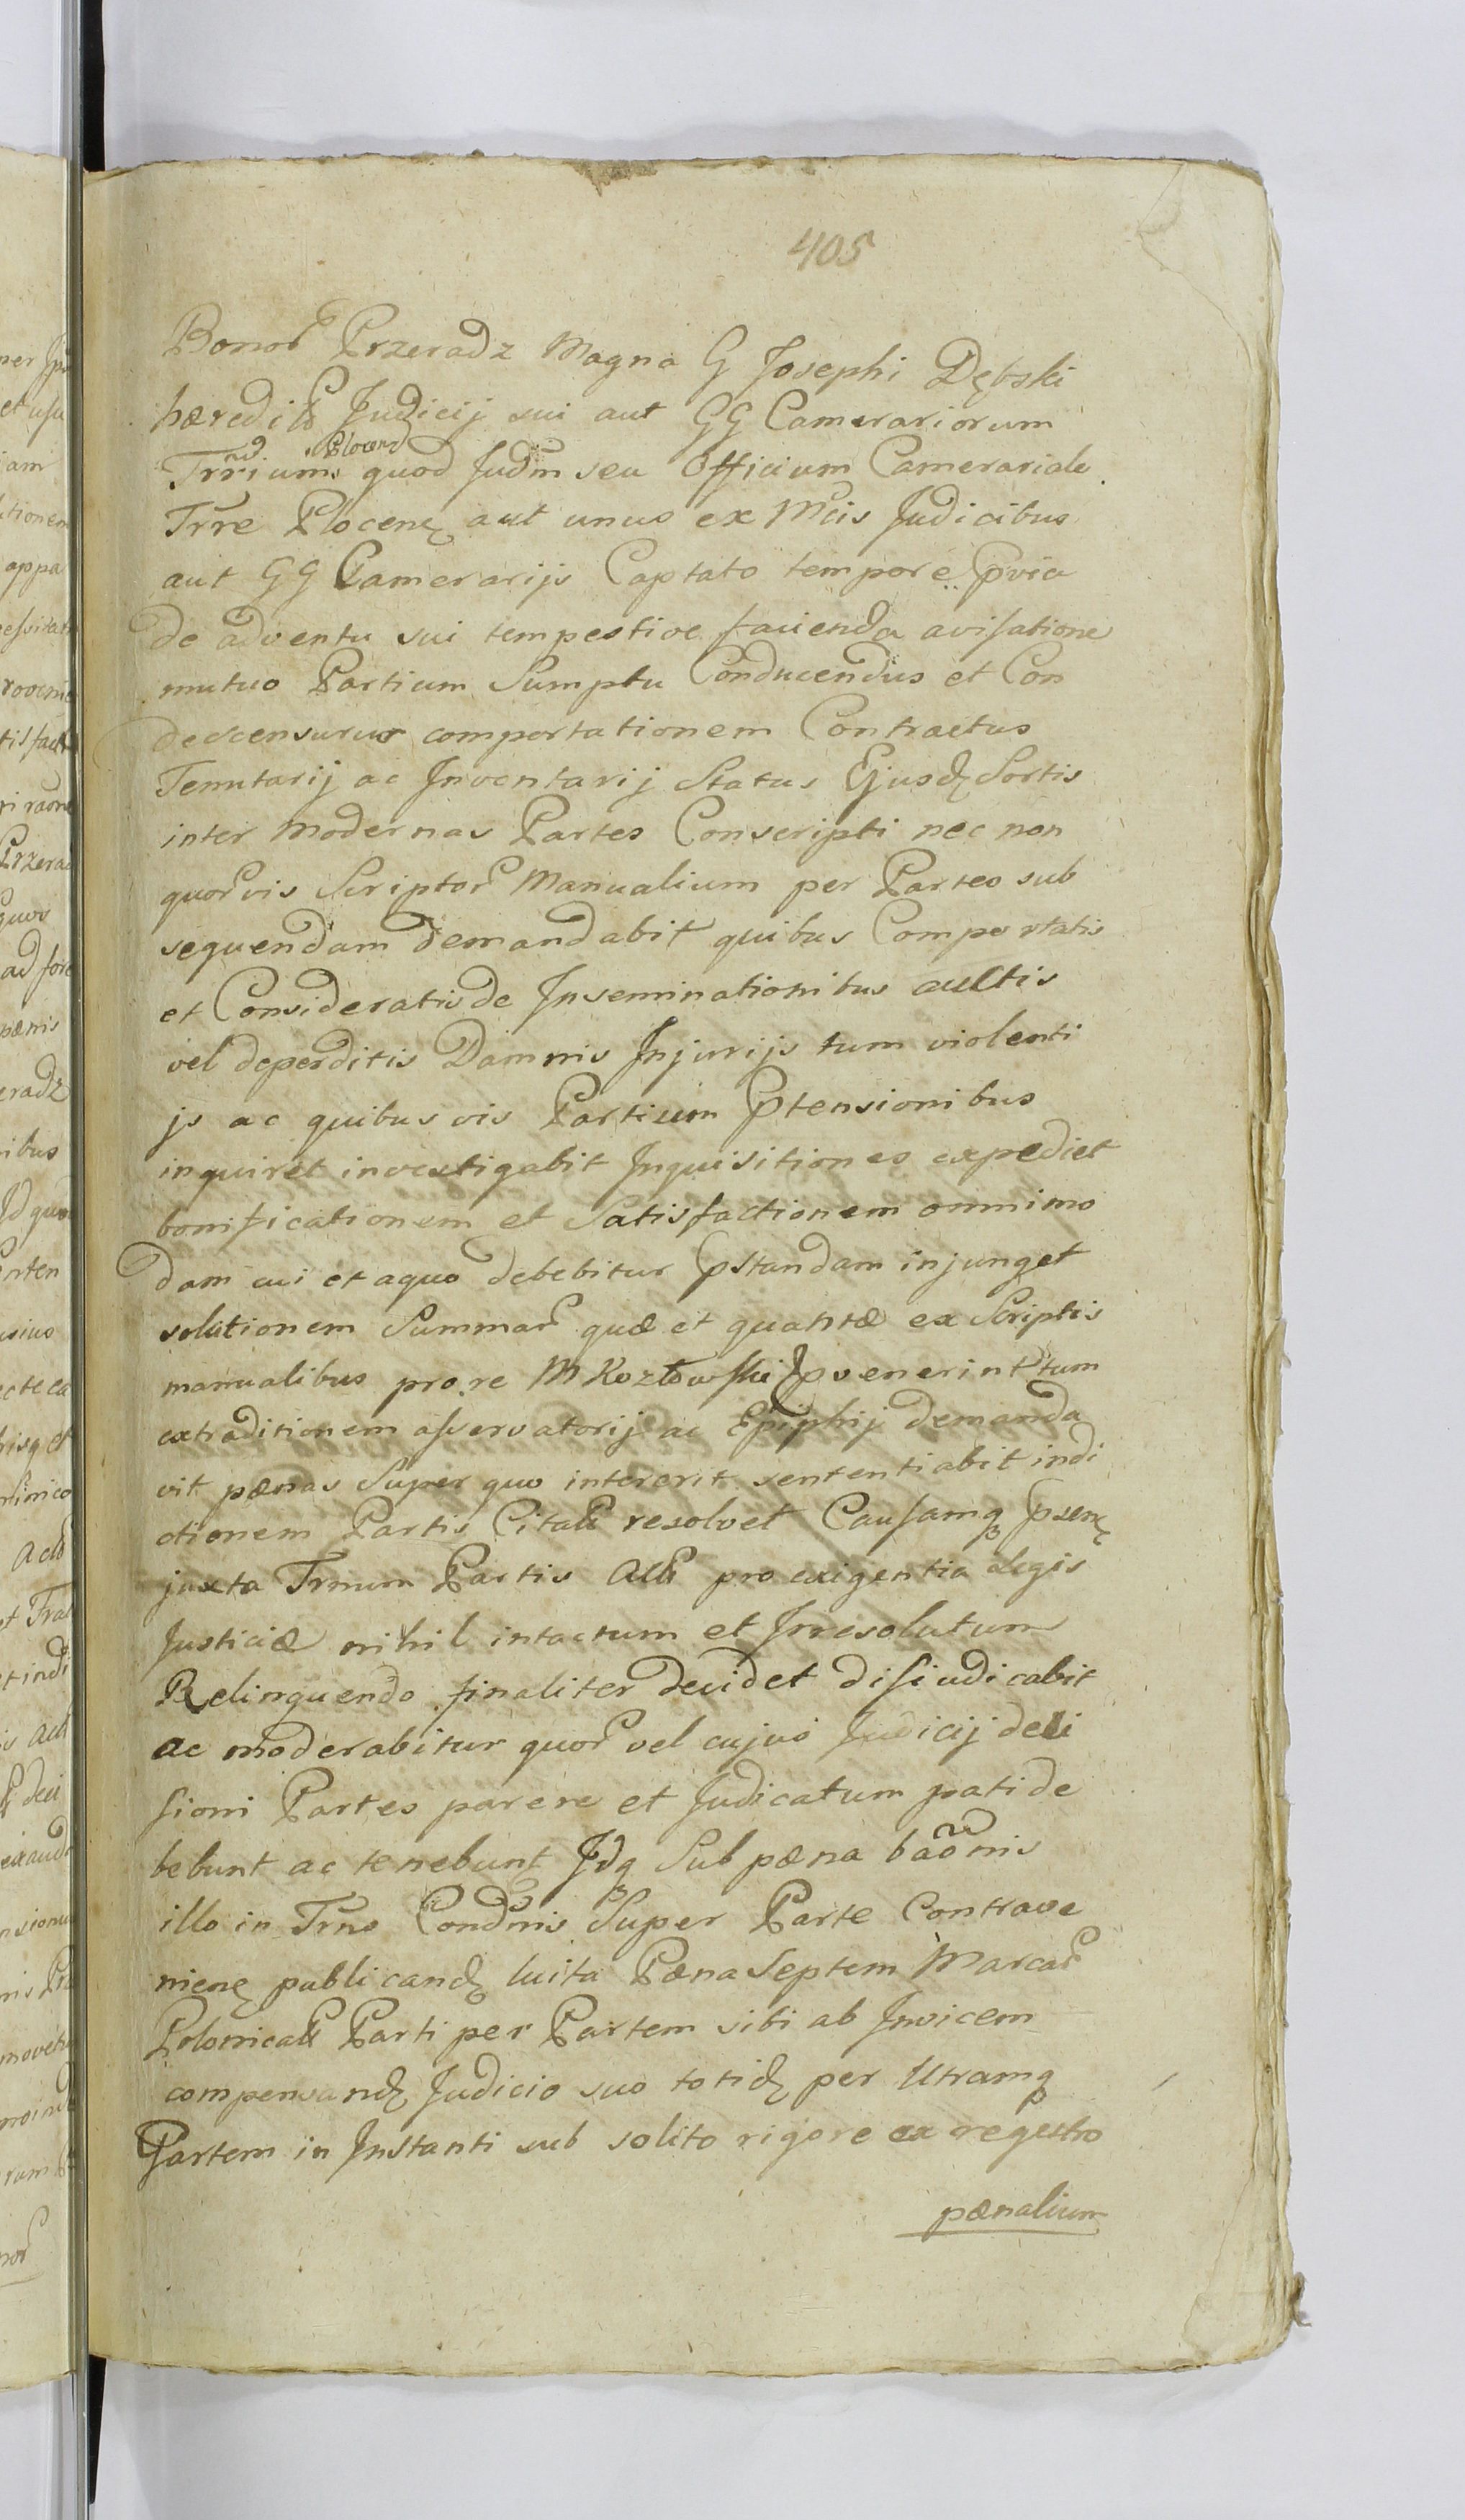 405
Bonor Przeradz Magna G Josephi Dębski
hæredis Judicij sui aut GG Camerariorum
Trrium Plocen quod Judm seu Officium Camerariale
Trre Plocenę aut unus ex Mcis Judicibus
aut GG Camerarijs Captato tempore pvia
de adventu sui tempestive facienda avisatione
mutuo Partium Sumptu Conducendus et Con
descensurus comportationem Contractus
Tenutarij ac Inventarij Status Ejusdę Sortis
inter modernas Partes Conscripti nec non
quorvis Scriptor Manualium per Partes sub
sequendam demandabit quibus Comportatis
et Consideratis de Inseminationibus auctis
vel deperditis Damnis Injurijs tum violenti
js ac quibusvis Partium ptensionibus
inquiret investigabit Inquisitiones expediet
bonificationem et Satisfactionem omnimo
dam cui et a quo debebitur pstandam injunget
solutionem Summar quæ et quantæ ex Scriptis
manualibus pro re M Kozłowski pvenerint tum
extraditionem asservatorij ac Epiphij demanda
vit pænas Super quo intererit sententiabit indi
ctionem Partis Citatæ resolvet Causamq psenę
juxta Trnum Partis Actæ pro exigentia Legis
Justiciæ nihil intactum et Irresolutum
Relinquendo finaliter decidet disiudicabit
ac moderabitur quor vel cujus Judicij deci
sioni Partes parere et Judicatum pati de
bebunt ac tenebunt Idq Sub pæna baonis
illo in Trno Condnis Super Parte Contrave
nienę publicandę luita Pæna Septem Marcar
Polonical Parti per Partem sibi ab Invicem
compensandę Judicio suo totidę per Utramq
Partem in Instanti sub solito rigore ex regestro
pænalium